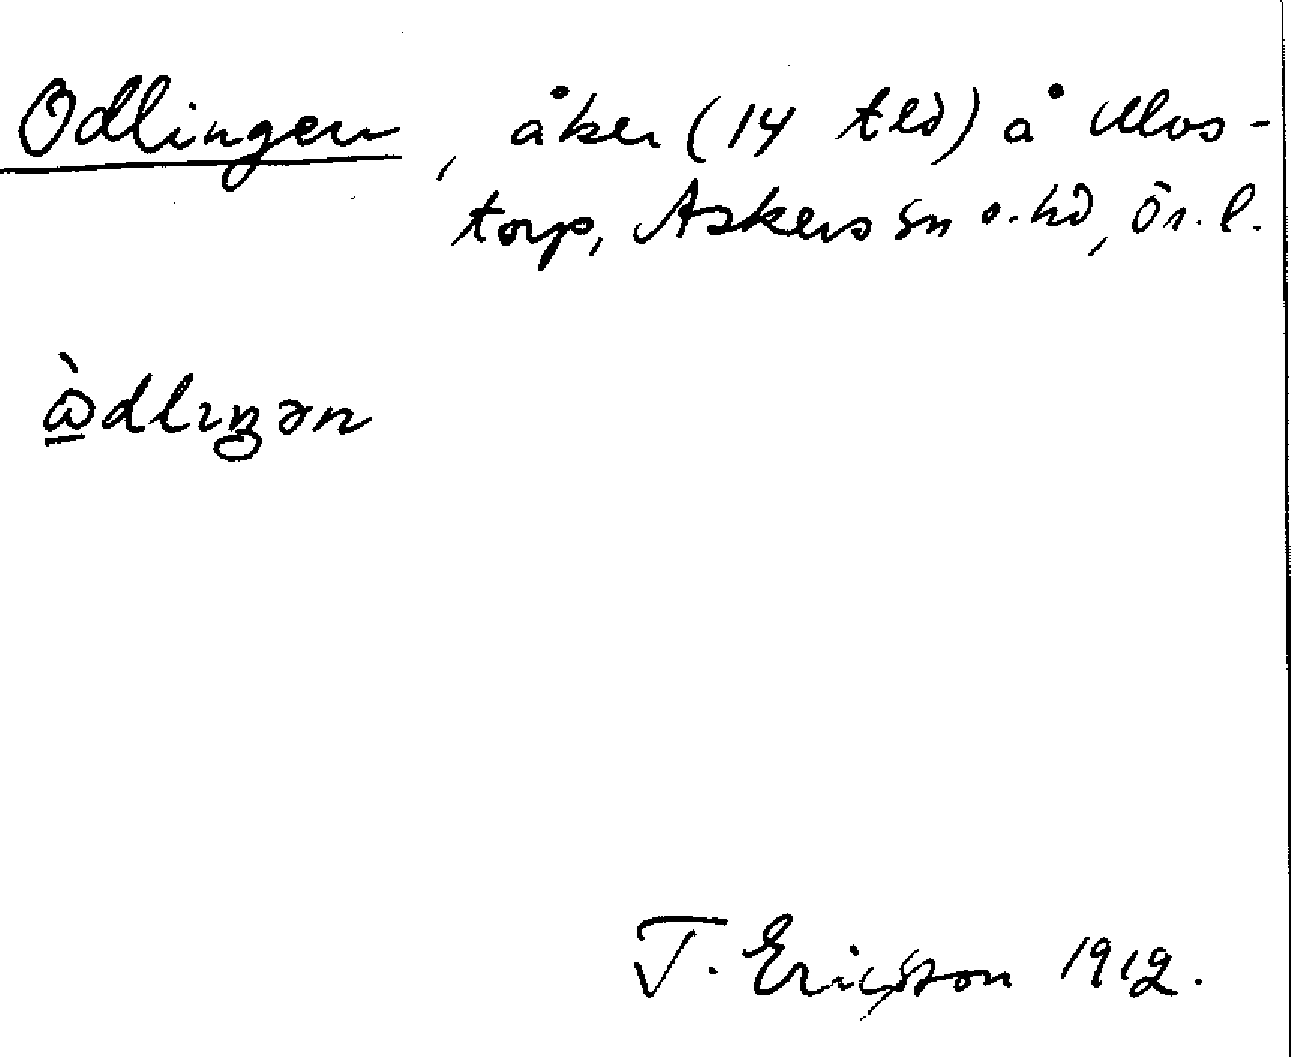 Odlingen, åker (14 tld) å Mos-
torp, Askers sn o. hd, Ör. l.
ὼ̠dlıŋən
T. Ericsson 1912.